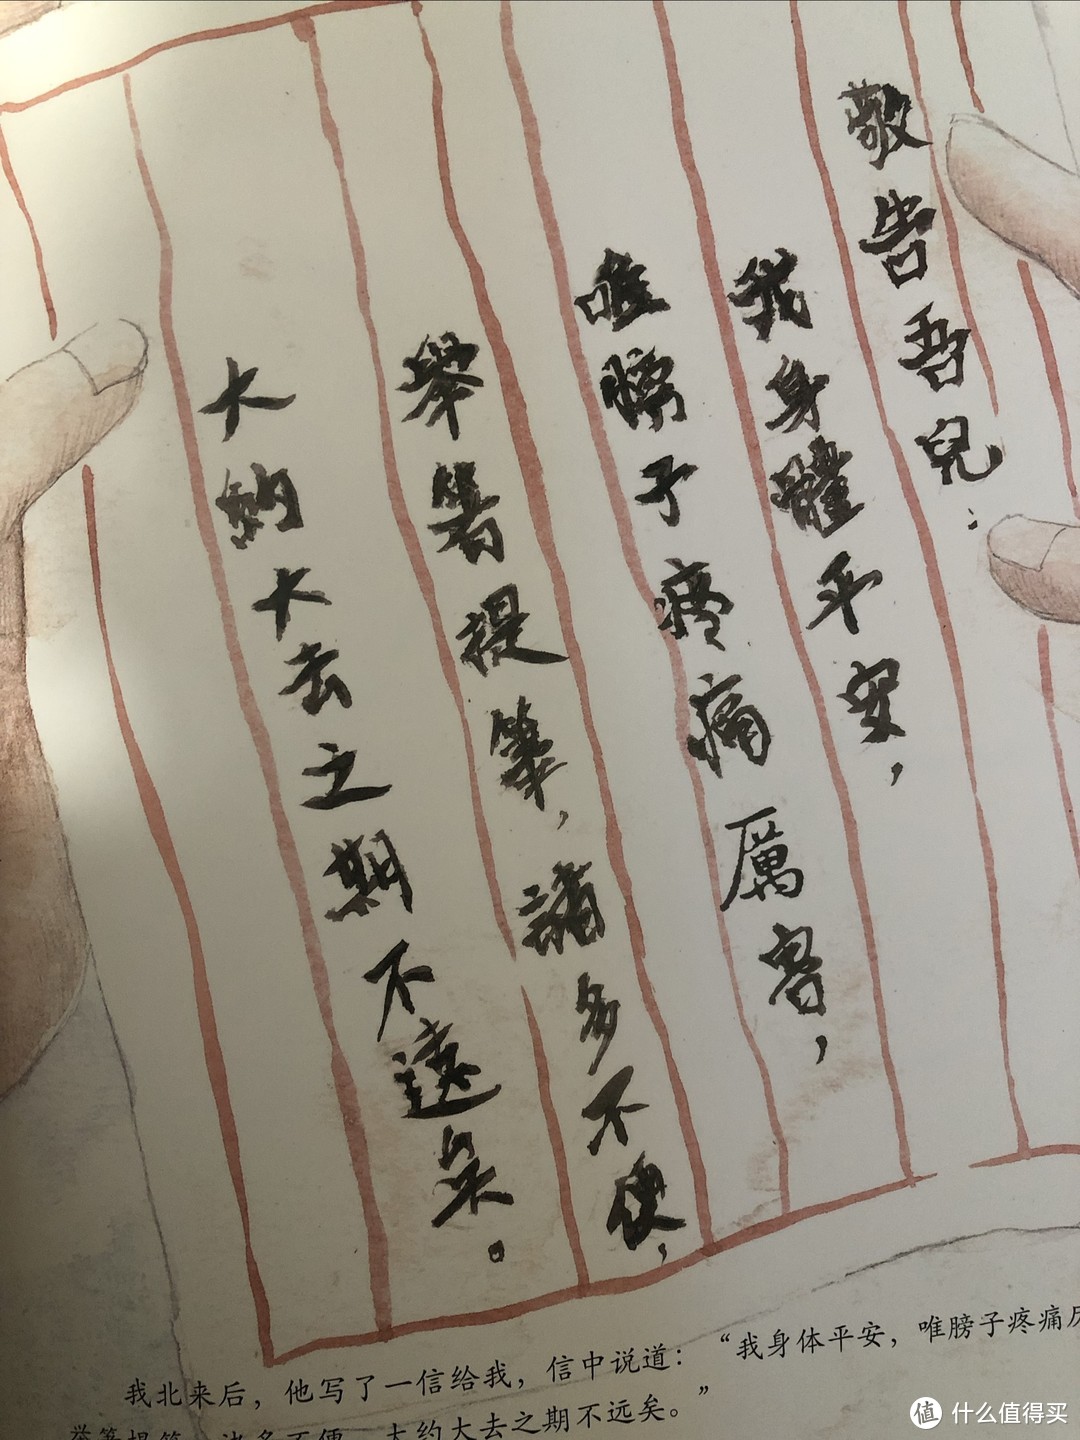 敬告吾兒：
我身體平安，
唯膀子疼痛厲害，
舉箸提筆，諸多不便，
大約大去之期不遠矣。
我北来后，他写了一信给我，信中说道：“我身体平安，唯膀子疼痛厉
举箸提笔，诸多不便，大约大去之期不远矣。”
值 什么值得买